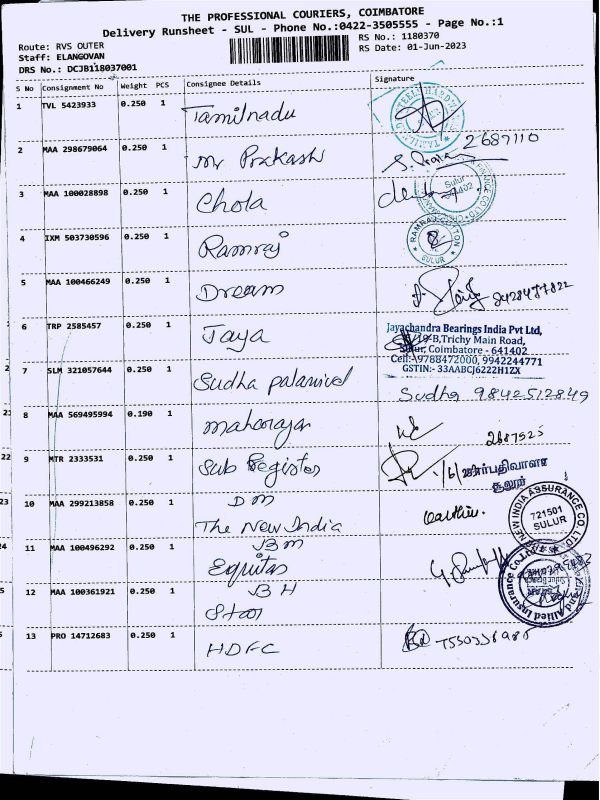 THE PROFESSIONAL COURIERS, COIMBATORE
Delivery Runsheet - SUL - Phone No.:0422-3505555 - Page No.:1
Route: RVS OUTER
RS No.: 1180370
Staff: ELANGOVAN
RS Date: 01-Jun-2023
DRS No.: DCJB118037001
S No Consignment No Weight PCS Consignee Details Signature
1 TVL 5423933 0.250 1 Tamilnadu
2 MAA 298679064 0.250 1 Mr Prakash 2687110
3 MAA 100028898 0.250 1 Chola
Sulur
4 IXM 503730596 0.250 1 Ramraj
RAMRAJ COTTON
SULUR
5 MAA 100466249 0.250 1 Dream
6 TRP 2585457 0.250 1 Jaya
Jayachandra Bearings India Pvt Ltd,
Trichy Main Road,
Sulur, Coimbatore - 641402
Cell: 9788472000, 9942244771
GSTIN:- 33AABCJ6222H1ZX
7 SLM 321057644 0.250 1 Sudha palanivel Sudha 9842512849
8 MAA 569495994 0.190 1 maharaja 2687525
9 MTR 2333531 0.250 1 Sub Register
சார்பதிவாளர்
சூலூர்
10 MAA 299213858 0.250 1 DM
The New India
NEW INDIA ASSURANCE CO. LTD.
721501
SULUR
11 MAA 100496292 0.250 1 BM
Equitas
12 MAA 100361921 0.250 1 BH
Star
and Allied Insurance Co. Ltd.
13 PRO 14712683 0.250 1 HDFC